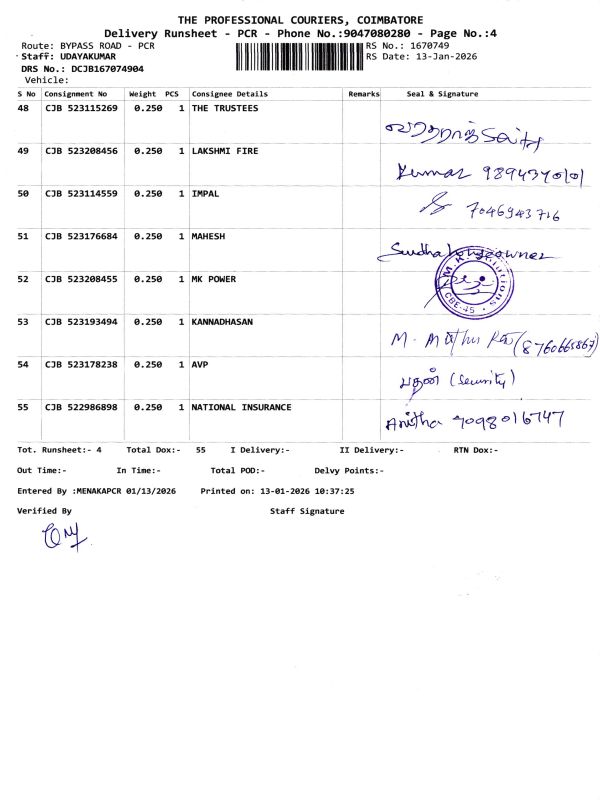 THE PROFESSIONAL COURIERS, COIMBATORE
Delivery Runsheet - PCR - Phone No.:9047080280 - Page No.:4
Route: BYPASS ROAD - PCR RS No.: 1670749
Staff: UDAYAKUMAR RS Date: 13-Jan-2026
DRS No.: DCJB167074904
Vehicle:
S No Consignment No Weight PCS Consignee Details Remarks Seal & Signature
48 CJB 523115269 0.250 1 THE TRUSTEES
49 CJB 523208456 0.250 1 LAKSHMI FIRE
Kumar 9894370101
50 CJB 523114559 0.250 1 IMPAL
7046943716
51 CJB 523176684 0.250 1 MAHESH
Sudha houseowner
52 CJB 523208455 0.250 1 MK POWER
CBE-45
53 CJB 523193494 0.250 1 KANNADHASAN
M. Muthu (8760665867)
54 CJB 523178238 0.250 1 AVP
(Security)
55 CJB 522986898 0.250 1 NATIONAL INSURANCE
Anitha 9098016747
Tot. Runsheet:- 4 Total Dox:- 55 I Delivery:- II Delivery:- RTN Dox:-
Out Time:- In Time:- Total POD:- Delvy Points:-
Entered By :MENAKAPCR 01/13/2026 Printed on: 13-01-2026 10:37:25
Verified By Staff Signature